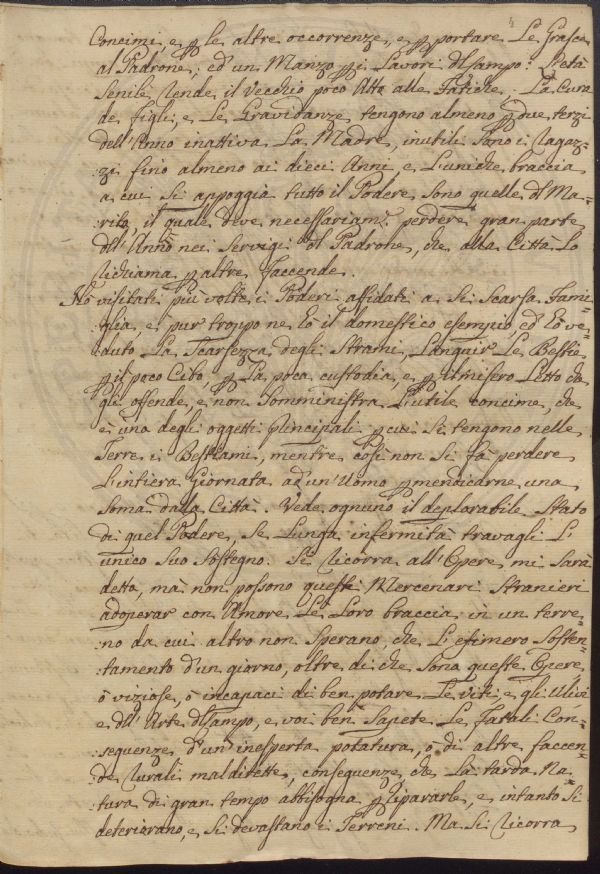 Concimi, e p le altre occorrenze, e p portare Le Grasce
al Padrone, ed' un Manzo p i Lavori del Campo. L'età
Senile rende il Vecchio poco Atto alle Fatiche. La Cura
de figli, e Le Gravidanze tengono almeno p due terzi
dell'Anno inattiva La Madre, inutili sono i Ragaz=
:zi fino almeno ai dieci Anni e L'uniche braccia
a cui si appoggia tutto il Podere sono quelle del Ma=
:rito, il quale deve necessariam.e perdere gran parte
dell'Anno nei Servigi del Padrone, che alla Città Lo
richiama p altre faccende.
Hò visitati più volte i Poderi affidati a sì Scarsa Fami=
:glia, e pur troppo ne hò il domestico esempio, ed hò ve=
:duto La Scarsezza degli Strami, Languir Le Bestie
p il poco Cibo, p La poca custodia, e p il misero Letto che
gli offende, e non somministra L'utile concime, che
è uno degli oggetti principali p cui si tengono nelle
Terre i Bestiami, mentre così non si fà perdere
L'intiera Giornata ad un'Uomo p mendicarne una
Soma dalla Città. Vede ognuno il deplorabile Stato
di quel Podere, se Lunga infermità travagli L'
unico suo Sostegno. Si ricorra all'Opere mi sarà
detto, mà non possono queste Mercenari Stranieri
adoperar con Amore Le Loro braccia in un terre=
:no da cui altro non sperano, che L'efimero Soften=
:tamento d'un giorno, oltre di che sono queste Opere
ò viziose, ò incapaci di ben potare Le viti e gli Ulivi
e dell'Arte del Campo, e voi ben Sapete Le fatali Con=
:seguenze d'un'inesperta potatura, ò di altre faccen=
:de rurali maldirette, conseguenze che La tarda Na=
:tura di gran tempo abbisogna p ripararle, e intanto si
deteriorano, e si devastano i Terreni. Ma si ricorra